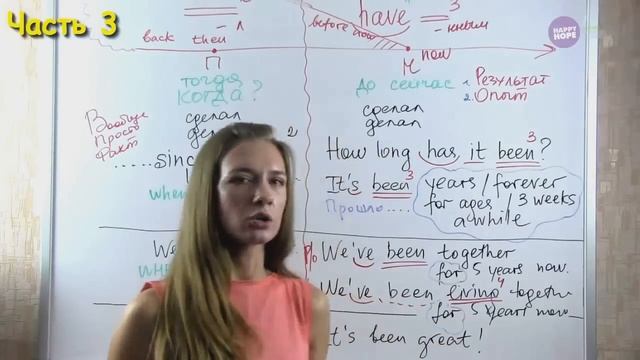 Часть 3
have 3
- нным
before now
HAPPY HOPE
back then
now
П
тогда
КОГДА?
сделал
делал
до сейчас
1. Результат
2. Опыт
сделал
делал
Вообще
Просто
Факт
2
.....sinc
How long has it been? 3
It's been 3
years / forever
for ages / 3 weeks
a while
Прошло....
We
We've been together
for 5 years now.
We've been living 4
for 5 years now
It's been great!